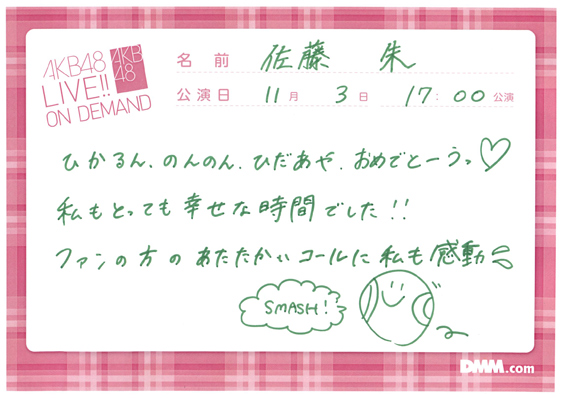 AKB48
LIVE!!
ON DEMAND
AKB
48
名前 佐藤 朱
公演日 11月 3日 17:00公演
ひかるん、のんのん、ひだあや、おめでとーうっ♡
私もとっても幸せな時間でした!!
ファンの方のあたたかぃコールに私も感動
SMASH!
DMM.com